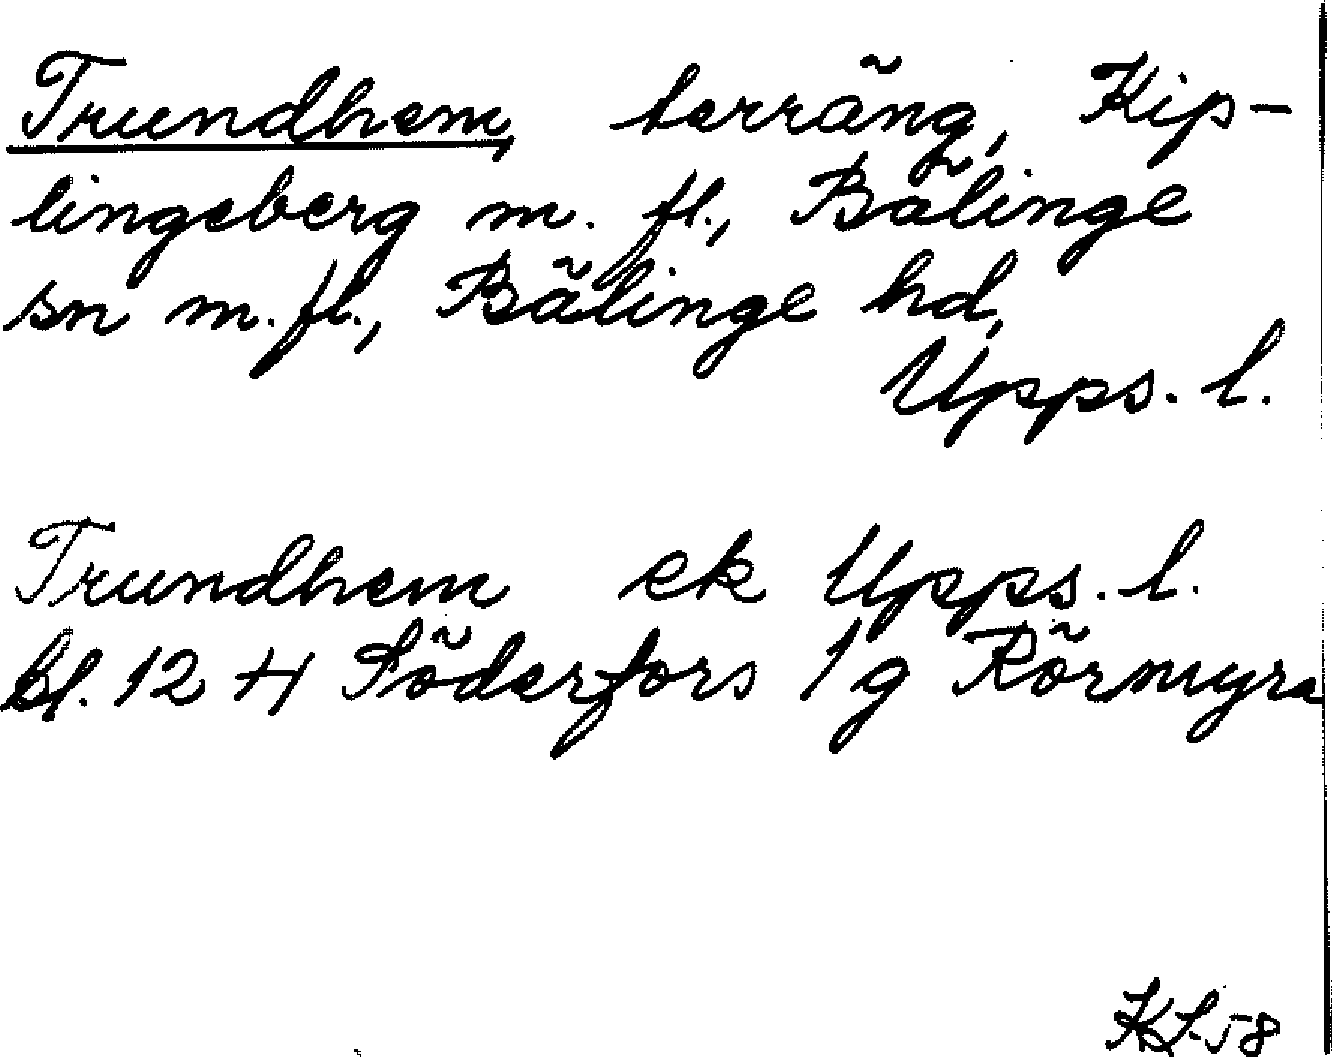 Trundhem, terräng, Kip-
lingeberg m. fl., Bälinge
sn m. fl., Bälinge hd,
Upps. l.
Trundhem ek Upps. l.
bl. 12 H Söderfors 1 g Rörmyra
KL 58